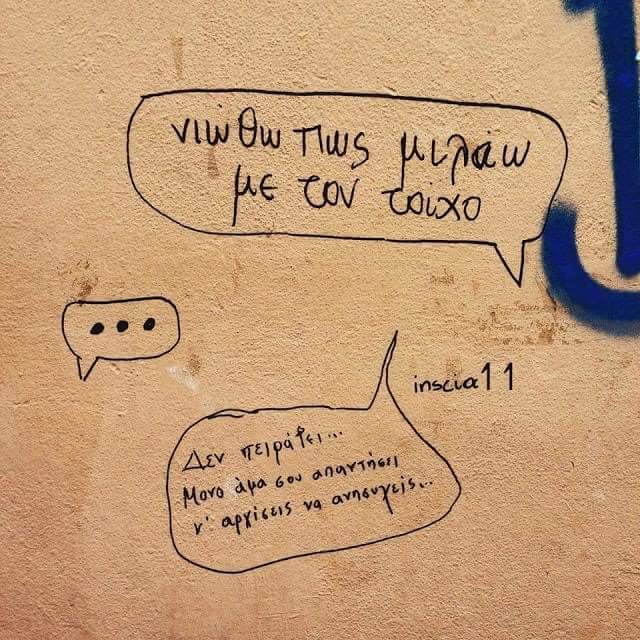 νιώθω πως μιλάω
με τον τοίχο
...
inscia11
Δεν πειράζει...
Μονο άμα σου απαντήσει
ν' αρχίσεις να ανησυχείς...